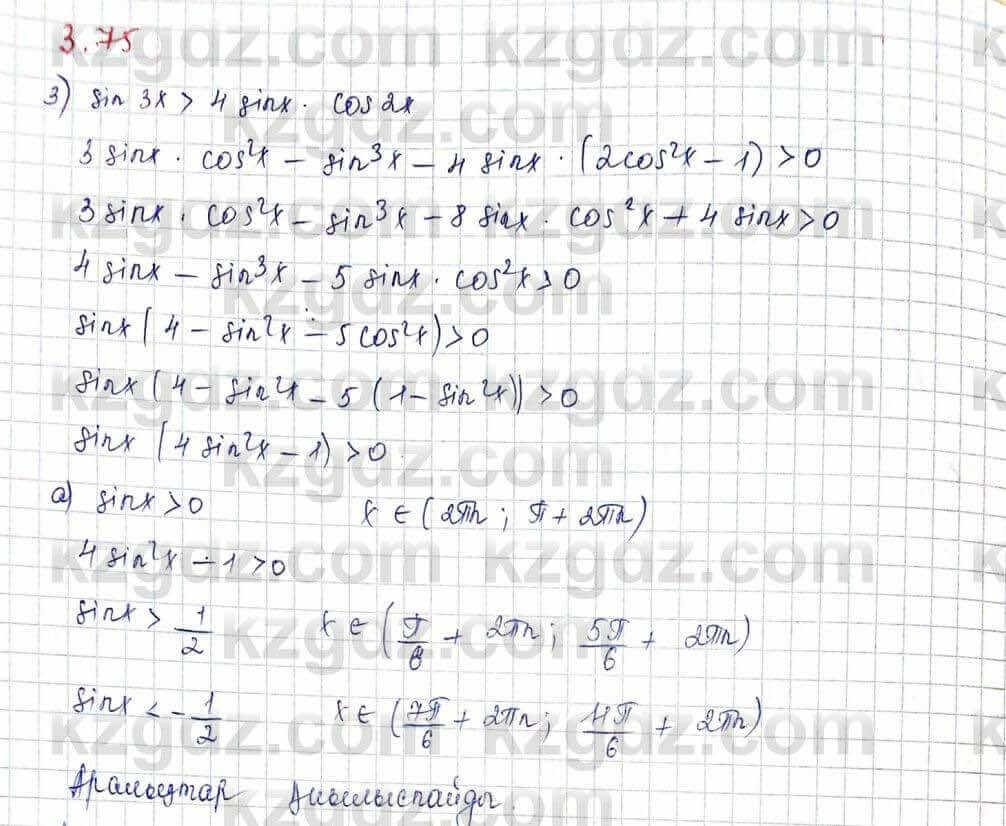 3.75
3) sin 3x > 4 sinx · cos 2x
3 sinx · cos²x − sin³x − 4 sinx · (2cos²x − 1) > 0
3 sinx · cos²x − sin³x − 8 sinx · cos²x + 4 sinx > 0
4 sinx − sin³x − 5 sinx · cos²x > 0
sinx (4 − sin²x − 5cos²x) > 0
sinx (4 − sin²x − 5 (1 − sin²x)) > 0
sinx (4 sin²x − 1) > 0
а) sinx > 0 x ∈ (2πn ; π + 2πn)
4 sin²x − 1 > 0
sinx > 1/2 x ∈ (π/6 + 2πn ; 5π/6 + 2πn)
sinx < −1/2 x ∈ (7π/6 + 2πn ; 11π/6 + 2πn)
kzgdz.com